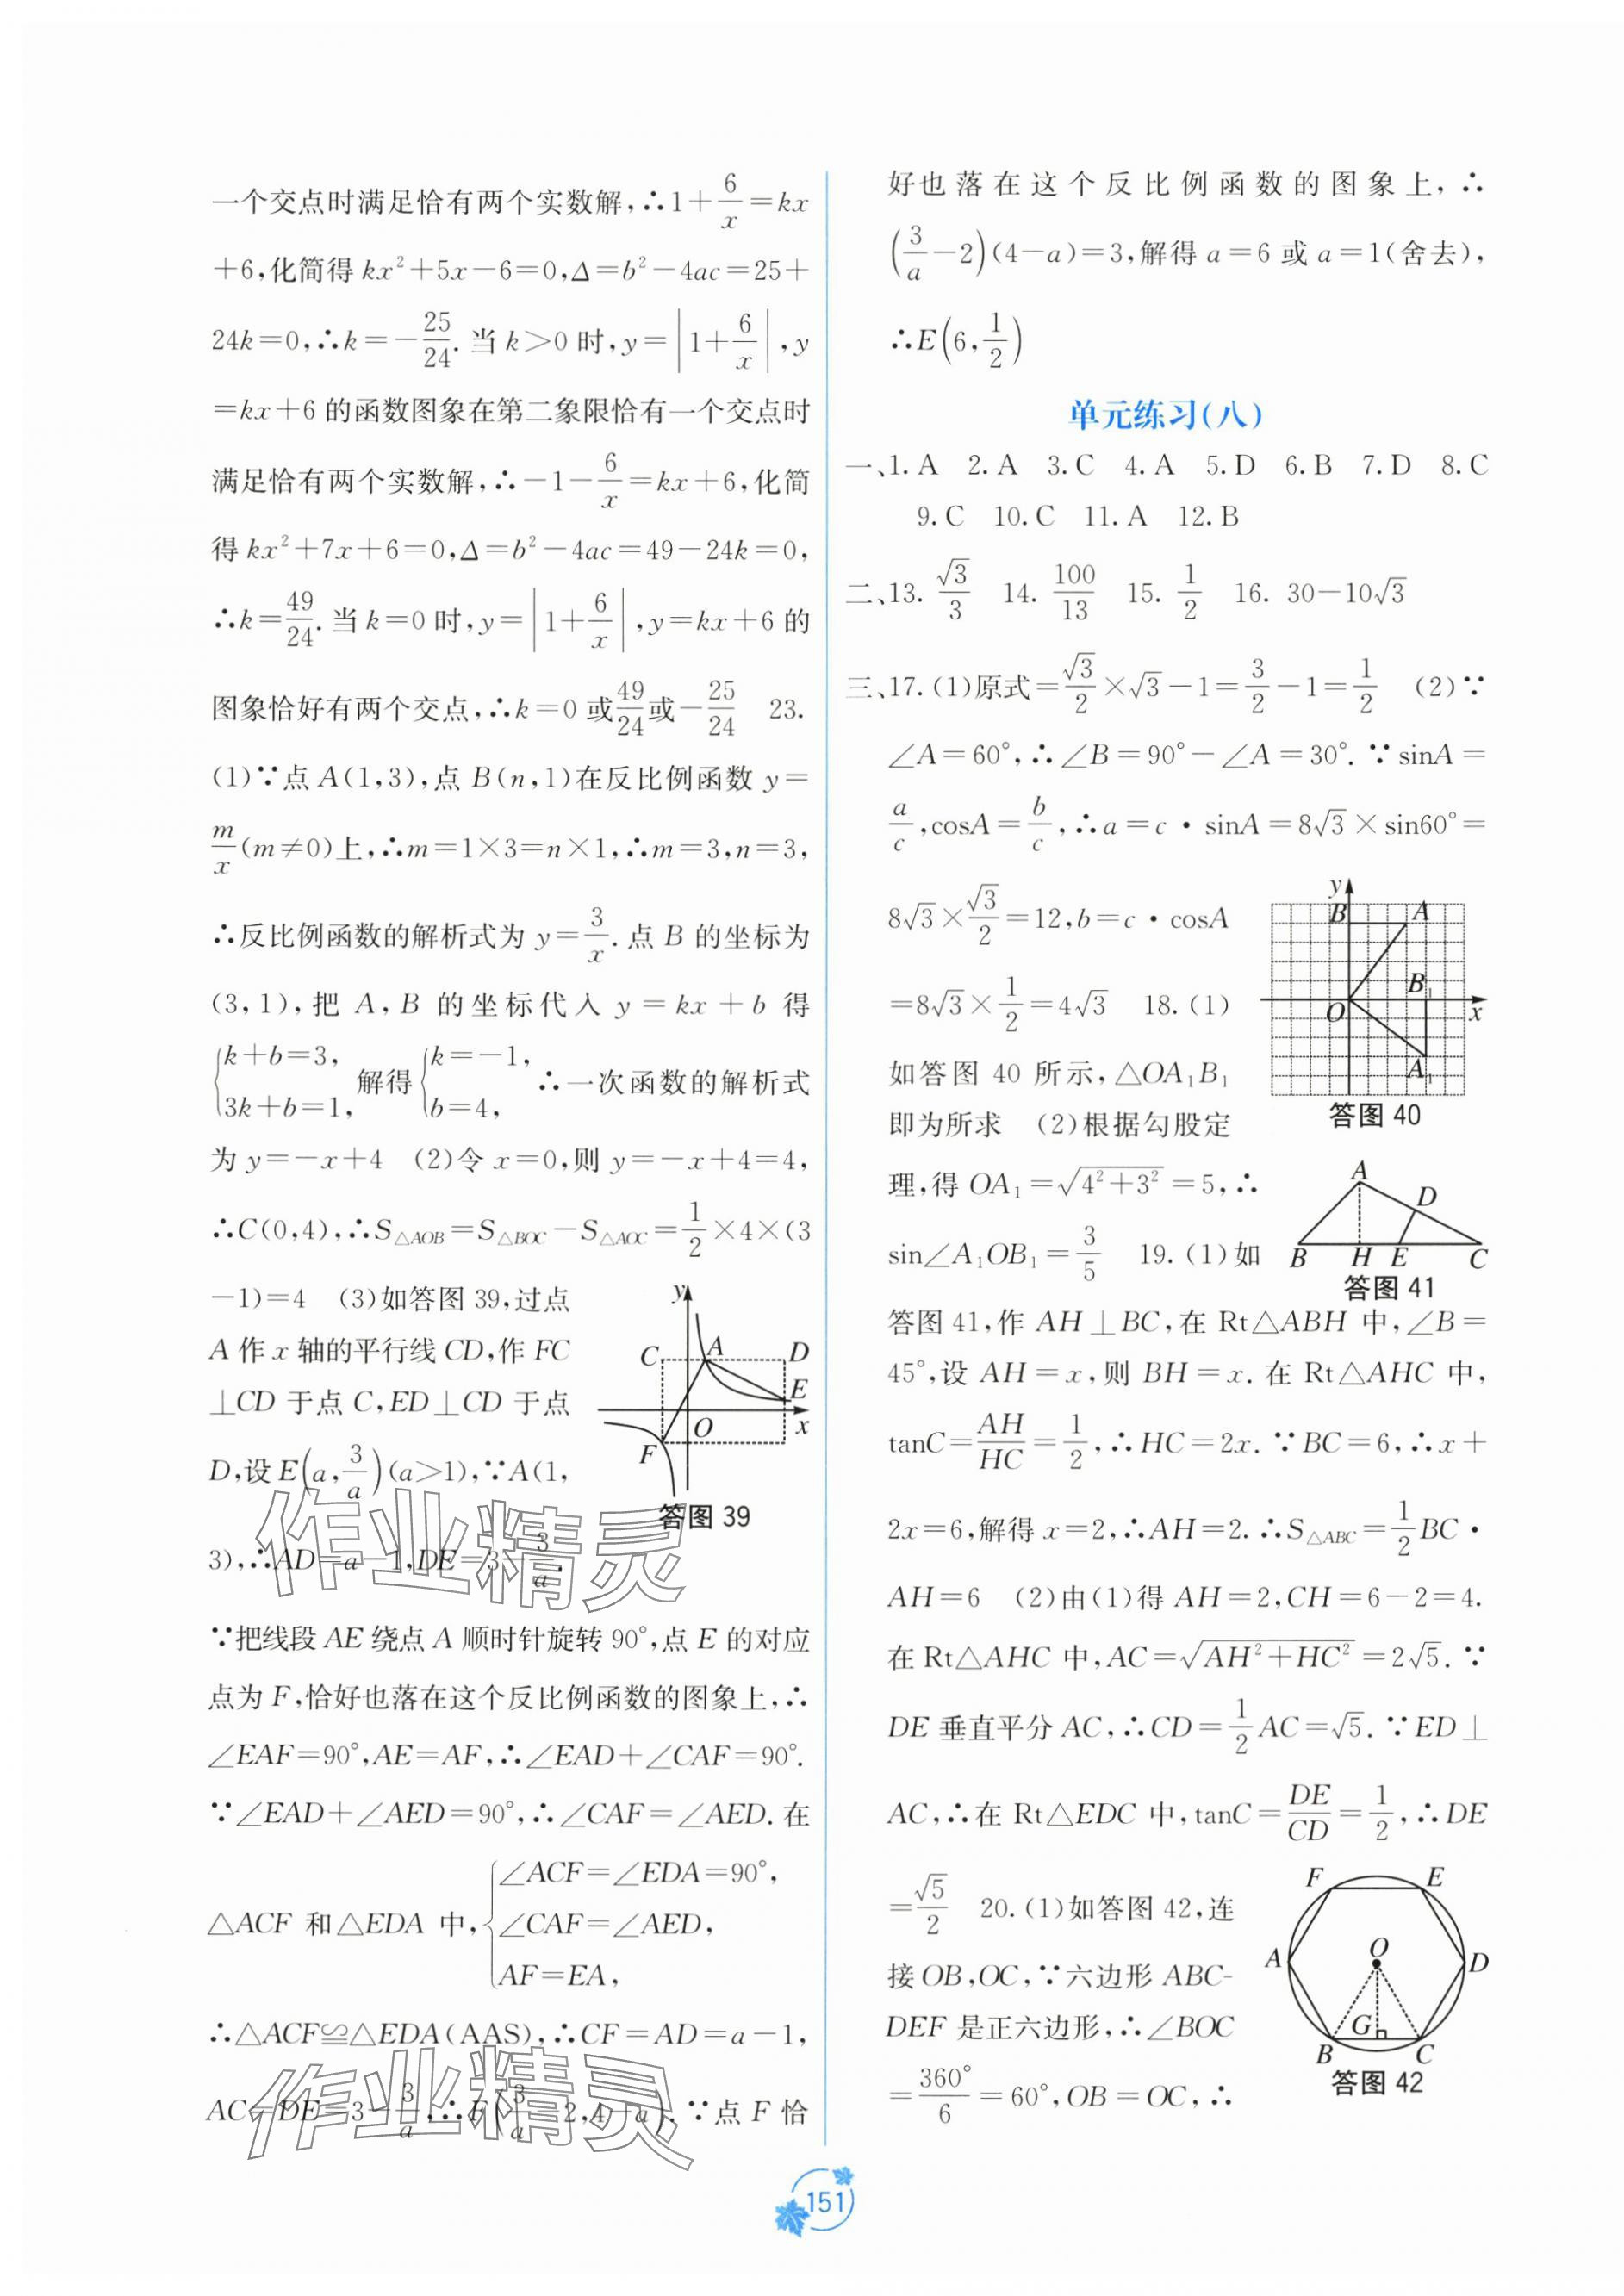 一个交点时满足恰有两个实数解,∴1+6/x=kx
+6,化简得 kx²+5x-6=0,Δ=b²-4ac=25+
24k=0,∴k=-25/24. 当 k>0 时,y=|1+6/x|,y
=kx+6 的函数图象在第二象限恰有一个交点时
满足恰有两个实数解,∴-1-6/x=kx+6,化简
得 kx²+7x+6=0,Δ=b²-4ac=49-24k=0,
∴k=49/24. 当 k=0 时,y=|1+6/x|,y=kx+6 的
图象恰好有两个交点,∴k=0 或49/24或-25/24 23.
(1)∵点 A(1,3),点 B(n,1)在反比例函数 y=
m/x(m≠0)上,∴m=1×3=n×1,∴m=3,n=3,
∴反比例函数的解析式为 y=3/x. 点 B 的坐标为
(3,1),把 A,B 的坐标代入 y=kx+b 得
{k+b=3, 3k+b=1, 解得{k=-1, b=4, ∴一次函数的解析式
为 y=-x+4 (2)令 x=0,则 y=-x+4=4,
∴C(0,4),∴S△AOB=S△BOC-S△AOC=1/2×4×(3
-1)=4 (3)如答图 39,过点
A 作 x 轴的平行线 CD,作 FC
⊥CD 于点 C,ED⊥CD 于点
D,设 E(a,3/a)(a>1),∵A(1,
y
C
A
D
E
O
x
F
答图 39
3),∴AD=a-1,DE=3-3/a.
∵把线段 AE 绕点 A 顺时针旋转 90°,点 E 的对应
点为 F,恰好也落在这个反比例函数的图象上,∴
∠EAF=90°,AE=AF,∴∠EAD+∠CAF=90°.
∵∠EAD+∠AED=90°,∴∠CAF=∠AED. 在
△ACF 和△EDA 中,{∠ACF=∠EDA=90°,
∠CAF=∠AED,
AF=EA,
∴△ACF≌△EDA(AAS),∴CF=AD=a-1,
AC=DE=3-3/a,∴F(3/a-2,4-a). ∵点 F 恰
作业精灵
作业精灵
好也落在这个反比例函数的图象上,∴
(3/a-2)(4-a)=3,解得 a=6 或 a=1(舍去),
∴E(6,1/2)
单元练习(八)
一、1. A 2. A 3. C 4. A 5. D 6. B 7. D 8. C
9. C 10. C 11. A 12. B
二、13. √3/3 14. 100/13 15. 1/2 16. 30-10√3
三、17. (1)原式=√3/2×√3-1=3/2-1=1/2 (2)∵
∠A=60°,∴∠B=90°-∠A=30°. ∵sinA=
a/c,cosA=b/c,∴a=c·sinA=8√3×sin60°=
8√3×√3/2=12,b=c·cosA
=8√3×1/2=4√3 18. (1)
如答图 40 所示,△OA₁B₁
即为所求 (2)根据勾股定
y
B
A
B₁
O
x
A₁
答图 40
理,得 OA₁=√(4²+3²)=5,∴
sin∠A₁OB₁=3/5 19. (1)如
A
D
B
H
E
C
答图 41
答图 41,作 AH⊥BC,在 Rt△ABH 中,∠B=
45°,设 AH=x,则 BH=x. 在 Rt△AHC 中,
tanC=AH/HC=1/2,∴HC=2x. ∵BC=6,∴x+
2x=6,解得 x=2,∴AH=2. ∴S△ABC=1/2BC·
AH=6 (2)由(1)得 AH=2,CH=6-2=4.
在 Rt△AHC 中,AC=√(AH²+HC²)=2√5. ∵
DE 垂直平分 AC,∴CD=1/2AC=√5. ∵ED⊥
AC,∴在 Rt△EDC 中,tanC=DE/CD=1/2,∴DE
=√5/2 20. (1)如答图 42,连
接 OB,OC,∵六边形 ABC-
DEF 是正六边形,∴∠BOC
=360°/6=60°,OB=OC,∴
F
E
A
O
D
G
B
C
答图 42
151